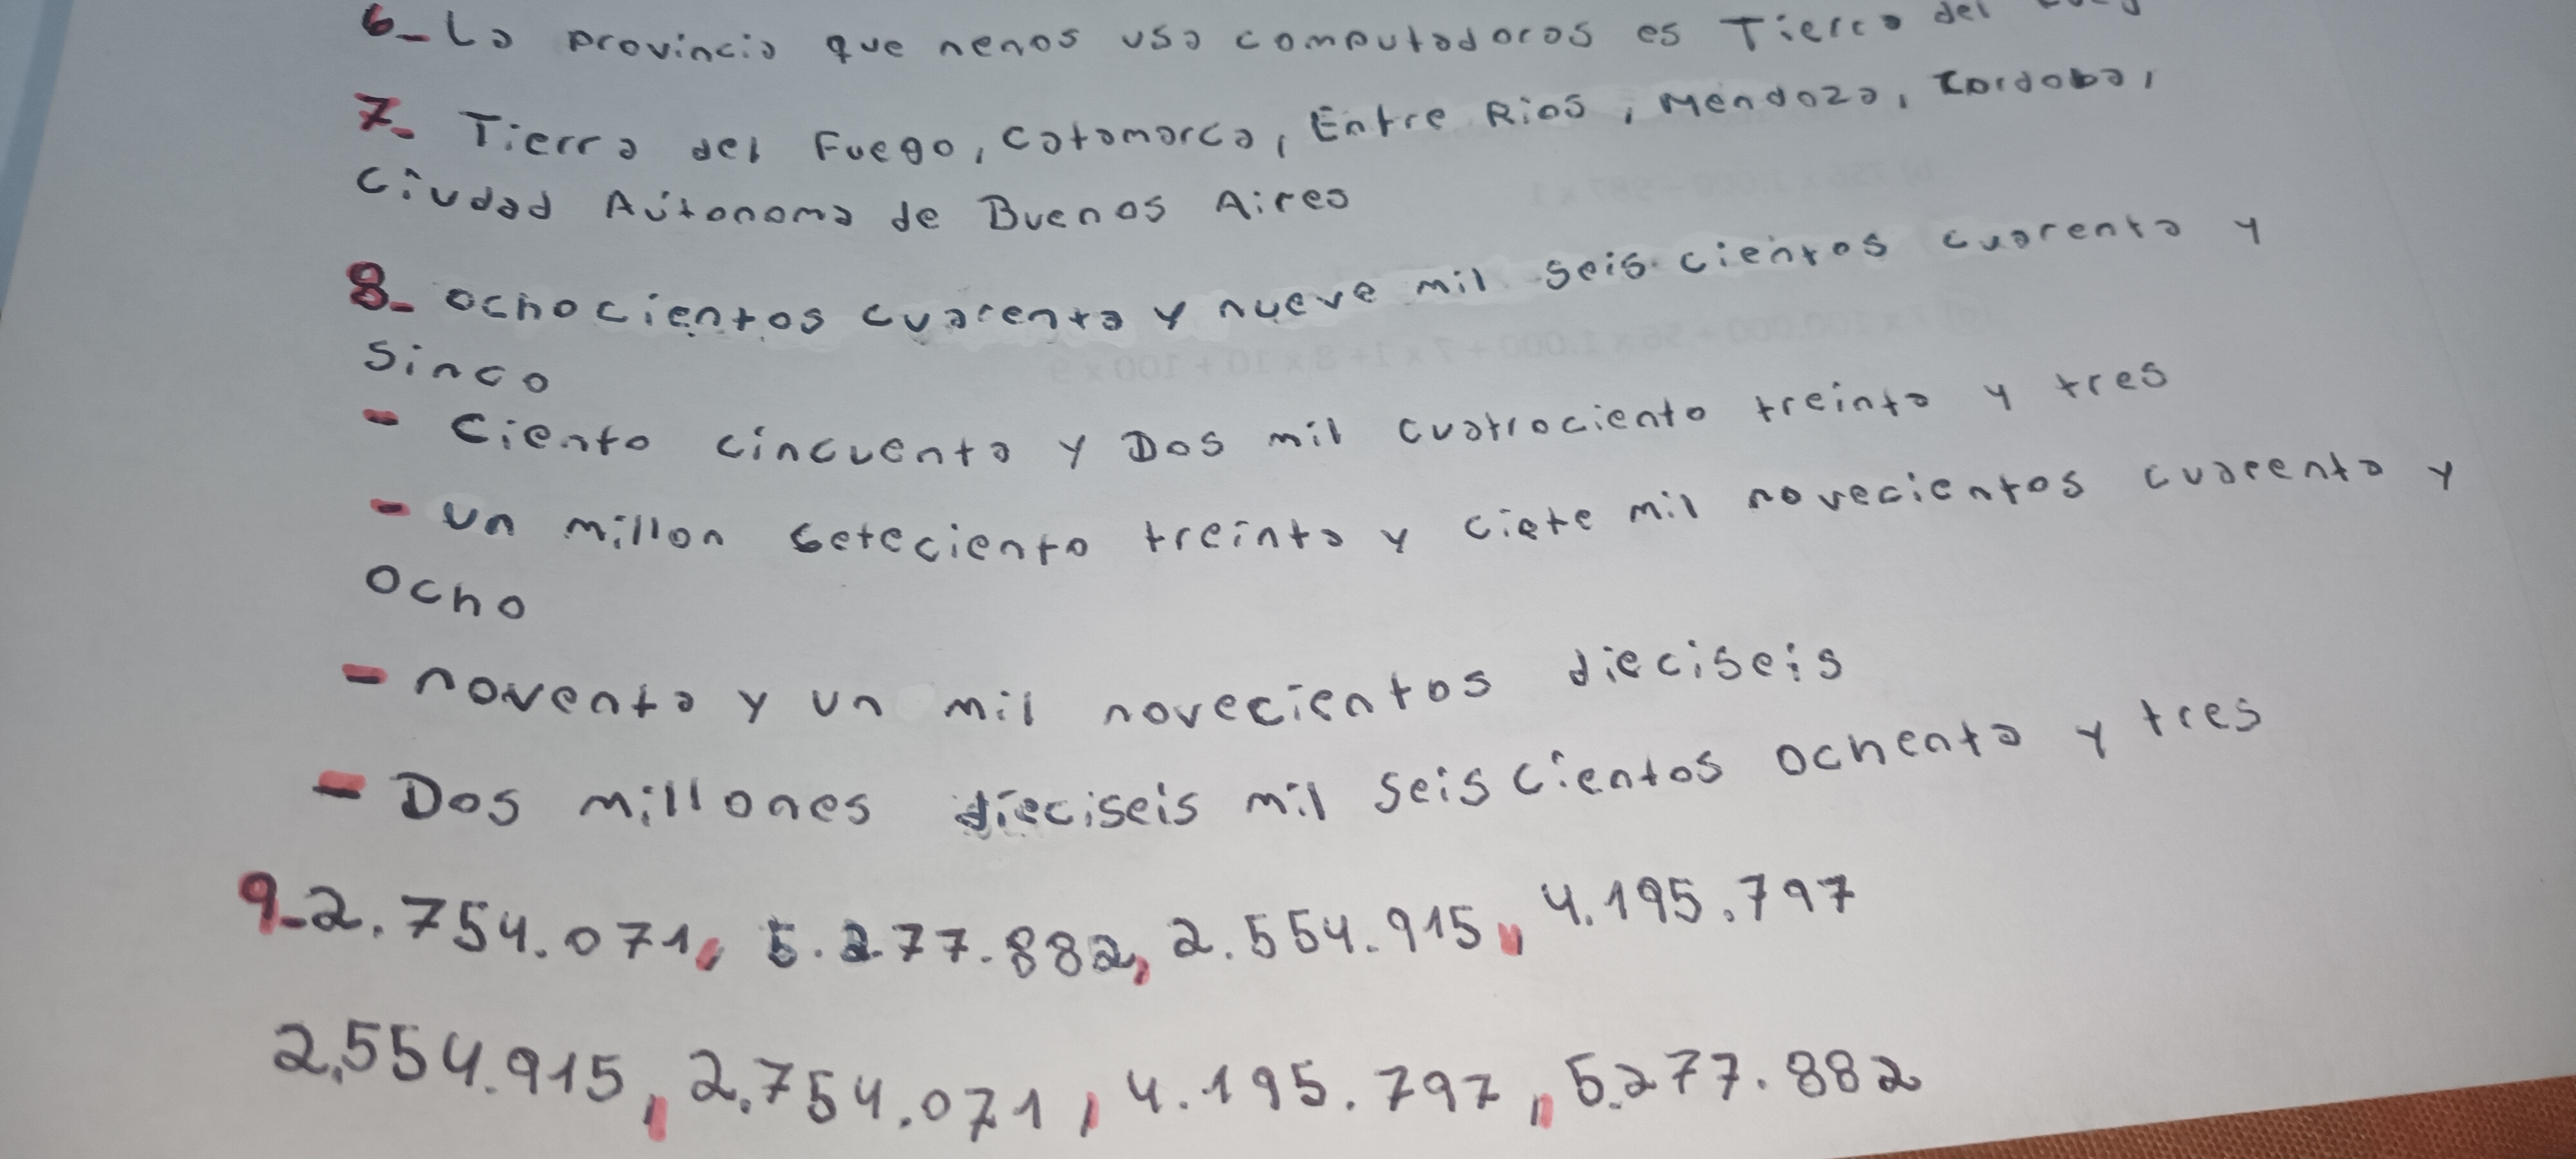 6_ La provincia que nenos usa computadoras es Tierra del
7_ Tierra del Fuego, Catamarca, Entre Rios, Mendoza, Cordoba,
Ciudad Aútonoma de Buenos Aires
8_ ochocientos cuarenta y nueve mil seis cientos cuarenta y
sinco
- Ciento cincuenta y Dos mil cuatrociento treinta y tres
- un millon seteciento treinta y ciete mil novecientos cuarenta y
ocho
- noventa y un mil novecientos dieciseis
- Dos millones dieciseis mil seiscientos ochenta y tres
9_ 2.754.071, 5.277.882, 2.554.915, 4.195.797
2.554.915, 2.754.071, 4.195.797, 5.277.882